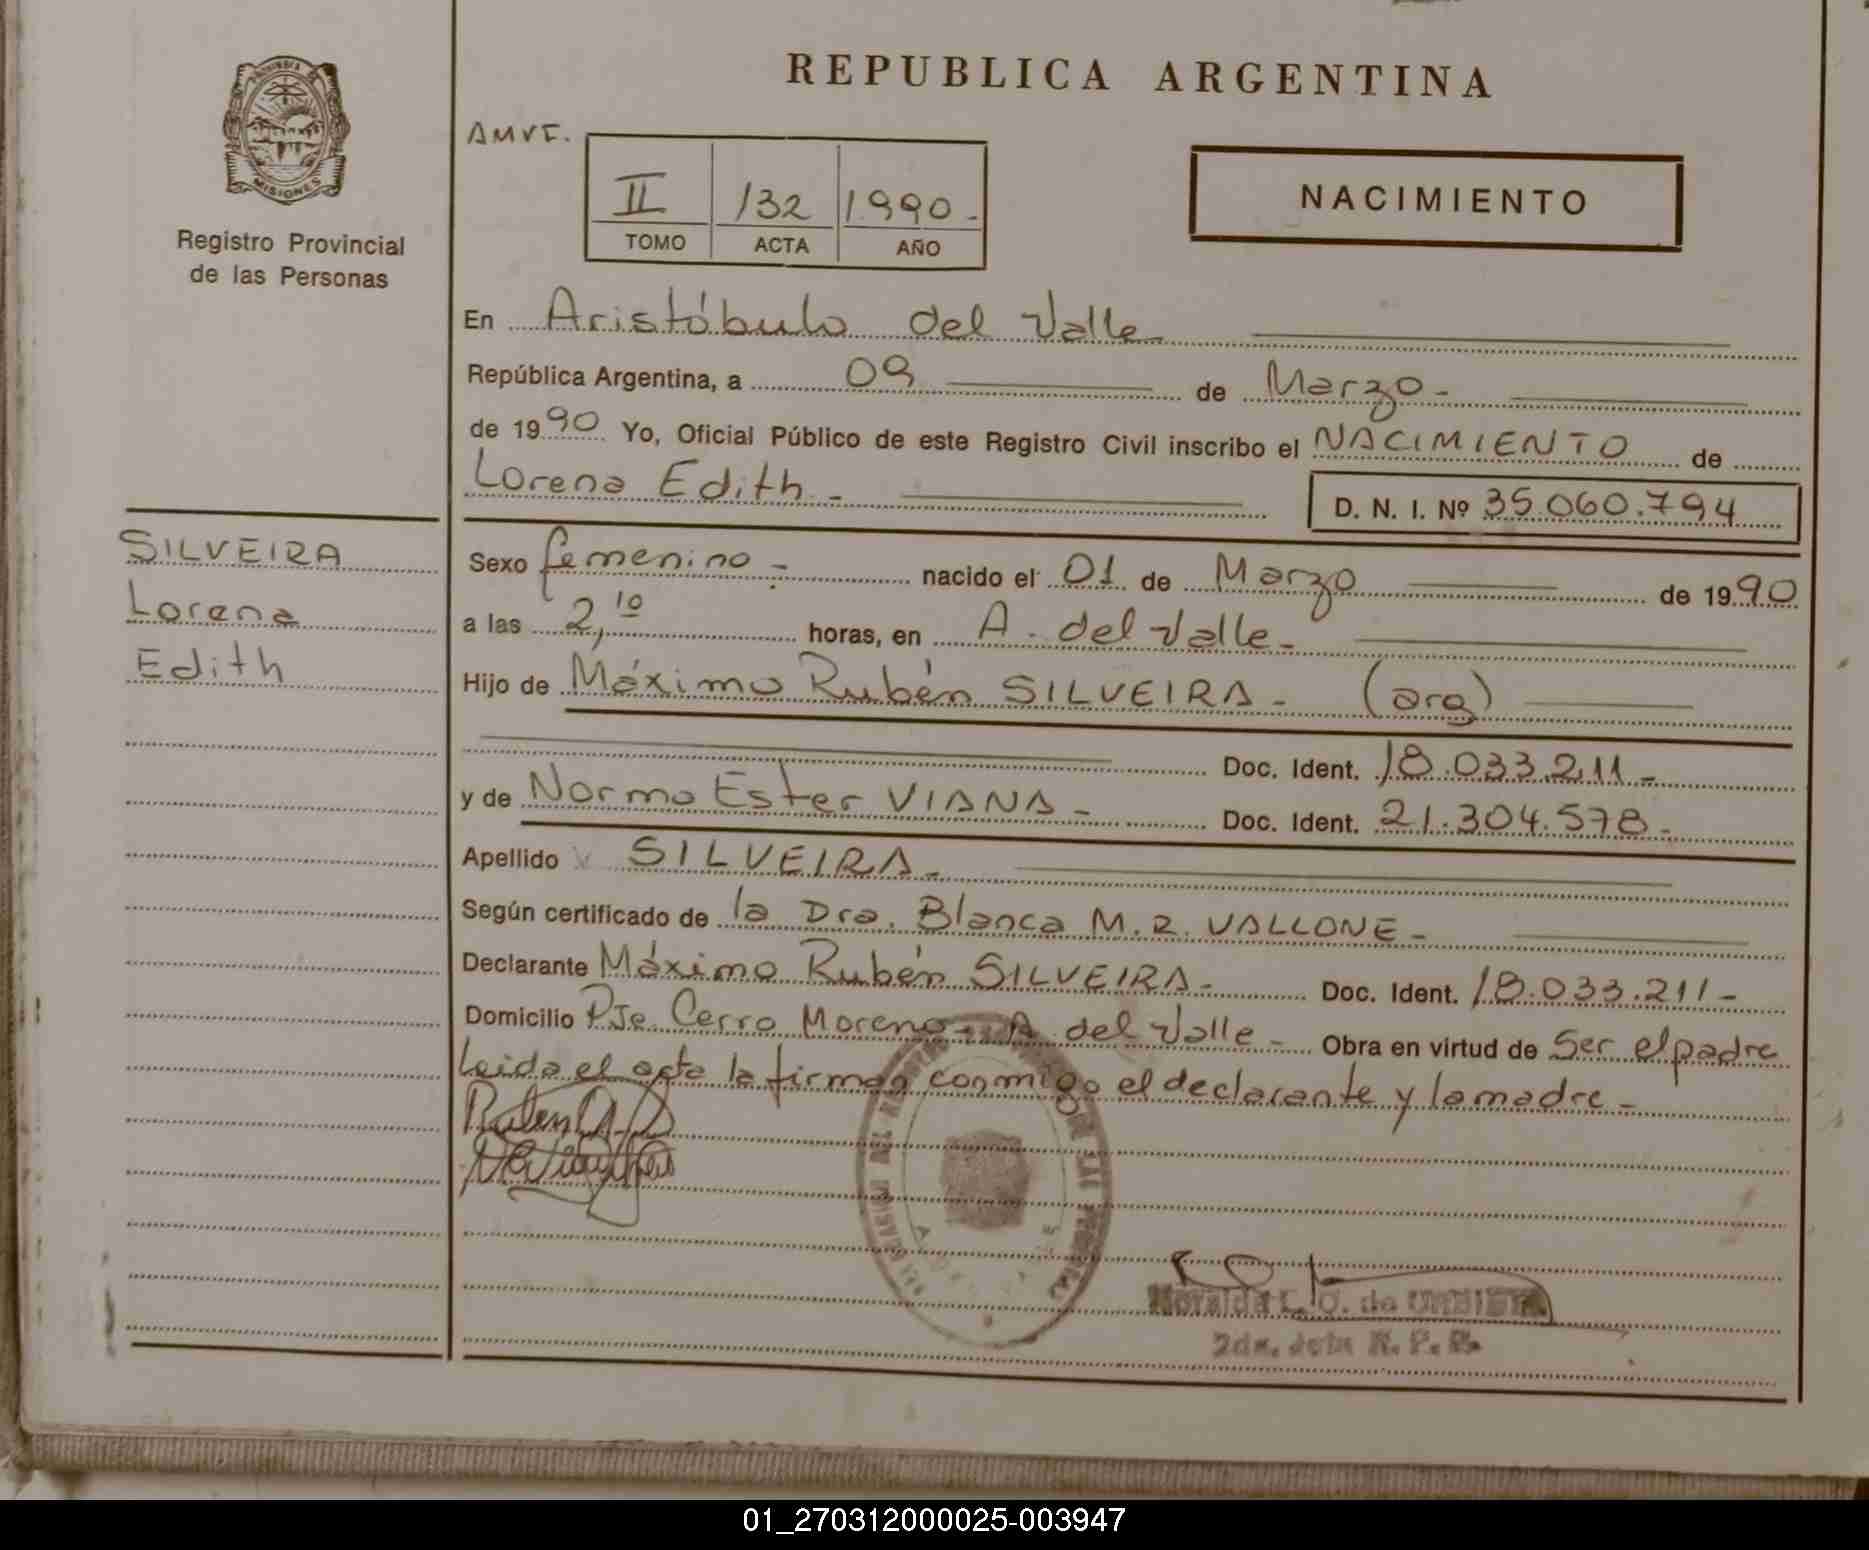 REPUBLICA ARGENTINA
PROVINCIA DE
MISIONES
Registro Provincial
de las Personas
AMVE.
II 132 1990-
TOMO ACTA AÑO
NACIMIENTO
En Aristóbulo del Valle
República Argentina, a 09 de Marzo-
de 1990 Yo, Oficial Público de este Registro Civil inscribo el NACIMIENTO de
Lorena Edith-
D. N. I. Nº 35.060.794
SILVEIRA
Lorena
Edith
Sexo femenino- nacido el 01 de Marzo de 1990
a las 2,10 horas, en A. del Valle-
Hijo de Máximo Rubén SILVEIRA- (arg)
Doc. Ident. 18.033.211-
y de Norma Ester VIANA- Doc. Ident. 21.304.578-
Apellido SILVEIRA-
Según certificado de la Dra. Blanca M. R. VALLONE-
Declarante Máximo Rubén SILVEIRA- Doc. Ident. 18.033.211-
Domicilio Pje. Cerro Moreno- A. del Valle- Obra en virtud de Ser el padre
Leida el acta la firman conmigo el declarante y la madre-
01_270312000025-003947